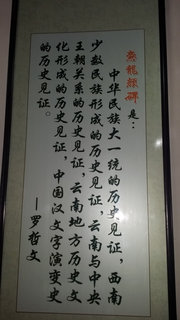 爨龍顏碑是：
中华民族大一统的历史见证，西南
少数民族形成的历史见证，云南与中央
王朝关系的历史见证，云南地方历史文
化形成的历史见证，中国汉文字演变史
的历史见证。
——罗哲文